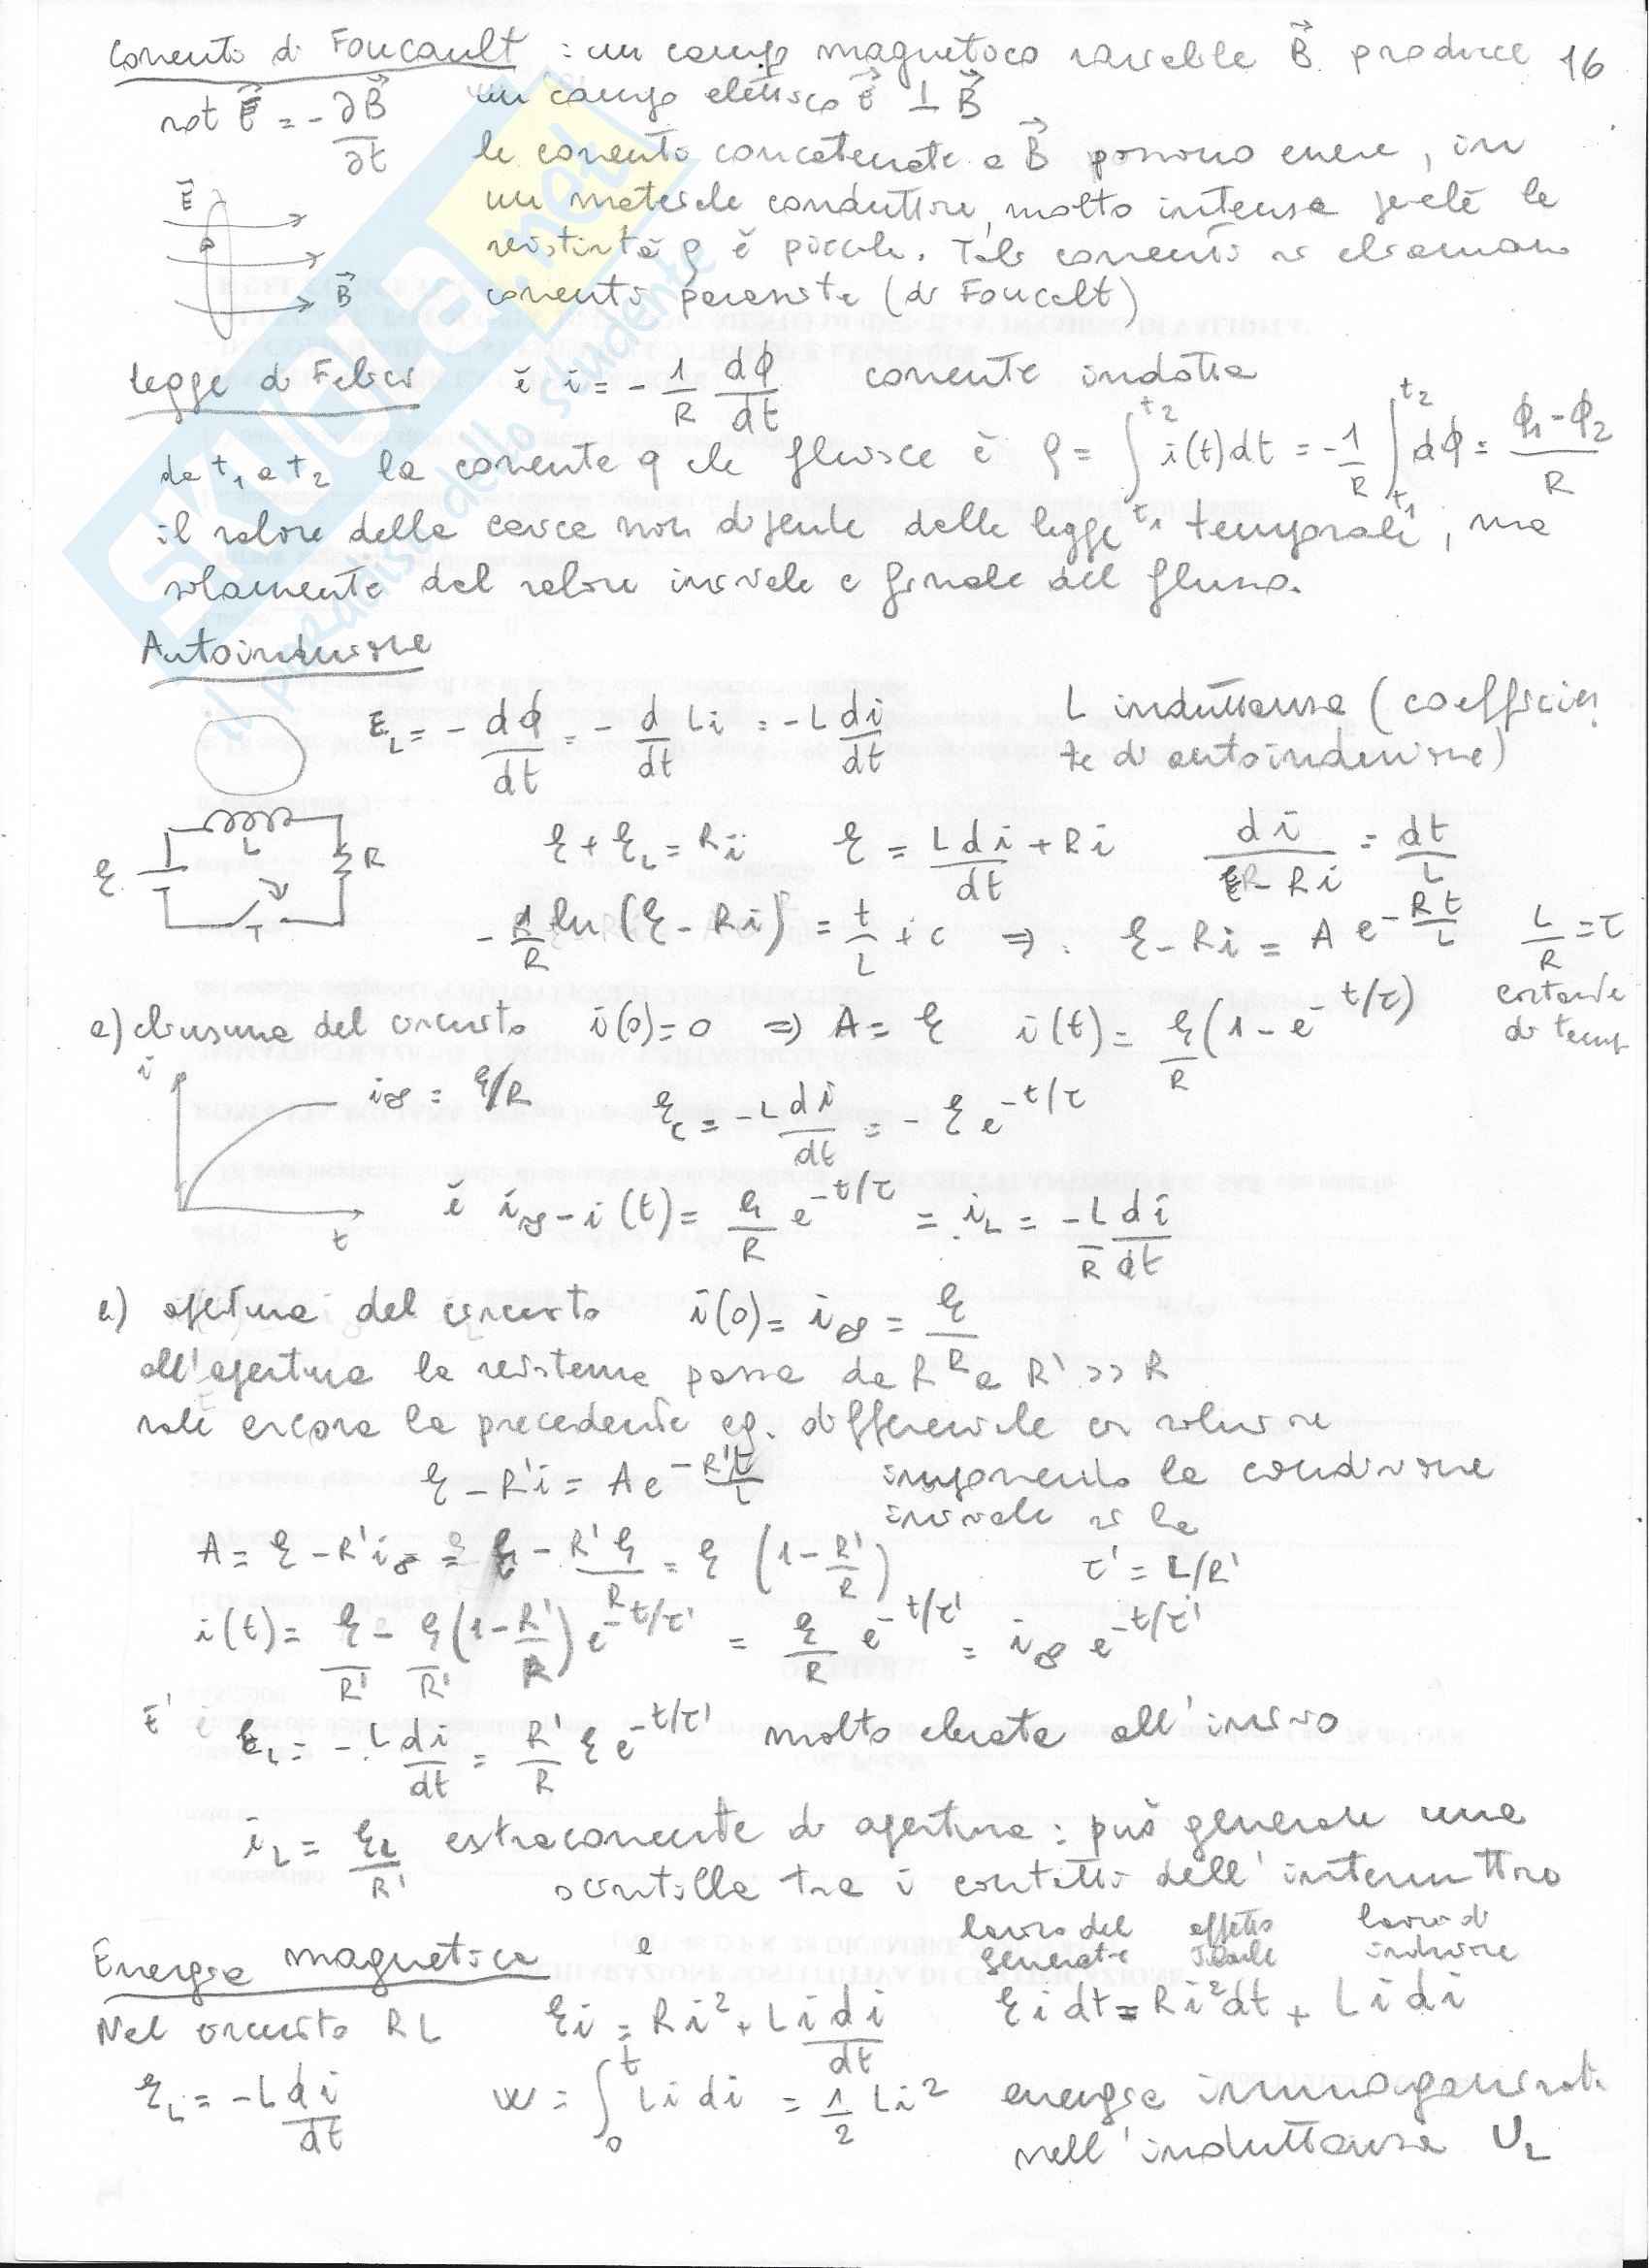 Correnti di Foucault : un campo magnetico variabile B⃗ produce 16
rot E⃗ = - ∂B⃗/∂t un campo elettrico E⃗ ⊥ B⃗
le correnti concatenate a B⃗ possono essere, in
E⃗ un materiale conduttore, molto intense perché la
resistività ρ è piccola. Tali correnti si chiamano
B⃗ correnti parassite (di Foucalt)
Legge di Felici è i = - 1/R dϕ/dt corrente indotta
da t1 a t2 la corrente q che fluisce è q = ∫_{t1}^{t2} i(t)dt = -1/R ∫_{t1}^{t2} dϕ = (ϕ1-ϕ2)/R
il valore della carica non dipende dalla legge temporale, ma
solamente dal valore iniziale e finale del flusso.
Autoinduzione
ℰL = - dϕ/dt = - d/dt Li = -L di/dt L induttanza (coefficien
te di autoinduzione)
ℰ L R T
ℰ + ℰL = Ri ℰ = L di/dt + Ri di/(ℰ - Ri) = dt/L
- 1/R ln(ℰ - Ri) = t/L + c ⇒ ℰ - Ri = A e^{-Rt/L} L/R = τ
costante di temp
a) chiusura del circuito i(0)=0 ⇒ A = ℰ i(t) = ℰ/R (1 - e^{-t/τ})
i i∞ = ℰ/R ℰL = -L di/dt = - ℰ e^{-t/τ}
t è i∞ - i(t) = ℰ/R e^{-t/τ} = iL = -L/R di/dt
b) apertura del circuito i(0) = i∞ = ℰ/R
all'apertura la resistenza passa da R a R' >> R
vale ancora la precedente eq. differenziale con soluzione
ℰ - R'i = A e^{-R't/L} imponendo la condizione
iniziale si ha
A = ℰ - R'i∞ = ℰ - R'ℰ/R = ℰ (1 - R'/R) τ' = L/R'
i(t) = ℰ/R' - ℰ/R' (1 - R'/R) e^{-t/τ'} = ℰ/R e^{-t/τ'} = i∞ e^{-t/τ'}
E' ℰL = -L di/dt = R'/R ℰ e^{-t/τ'} molto elevata all'inizio
iL = ℰL/R' estracorrente di apertura : può generare una
scintilla tra i contatti dell'interruttore
lavoro del generatore effetto Joule lavoro di induzione
Energia magnetica e
Nel circuito RL ℰi = Ri² + Li di/dt ℰi dt = Ri²dt + Li di
ℰL = -L di/dt W = ∫_0^t Li di = 1/2 Li² energia immagazzinata
nell'induttanza UL
SKUOLA.net
il paradiso dello studente